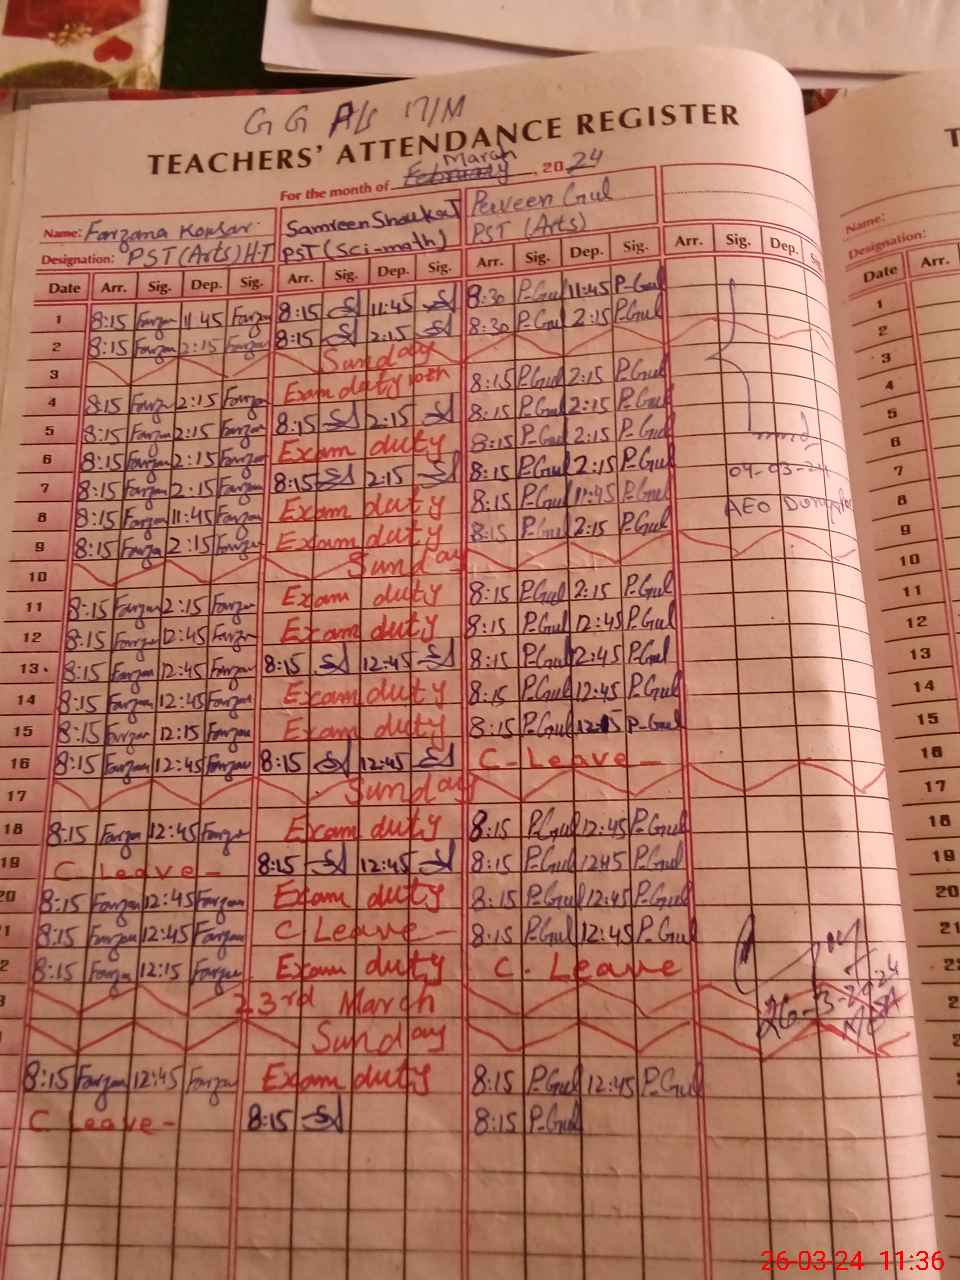 G G P/S 17/M
TEACHERS' ATTENDANCE REGISTER
For the month of March, 2024
Name: Farzana Kousar Samreen Shoukat Perveen Gul
Designation: PST (Arts) H.T PST (Sci-math) PST (Arts)
Date Arr. Sig. Dep. Sig. Arr. Sig. Dep. Sig. Arr. Sig. Dep. Sig. Arr. Sig. Dep.
1 8:15 Farzan 11:45 Farzan 8:15 11:45 8:30 P-Gul 11:45 P-Gul
2 8:15 Farzan 2:15 Farzan 8:15 2:15 8:30 P-Gul 2:15 P-Gul
3 Sunday
4 8:15 Farzan 2:15 Farzan Exam duty 10th 8:15 P.Gul 2:15 P-Gul
5 8:15 Farzan 2:15 Farzan 8:15 2:15 8:15 P-Gul 2:15 P-Gul
6 8:15 Farzan 2:15 Farzan Exam duty 8:15 P-Gul 2:15 P-Gul
7 8:15 Farzan 2:15 Farzan 8:15 2:15 8:15 P-Gul 2:15 P-Gul
8 8:15 Farzan 11:45 Farzan Exam duty 8:15 P-Gul 11:45 P-Gul
9 8:15 Farzan 2:15 Farzan Exam duty 8:15 P-Gul 2:15 P-Gul
10 Sunday
11 8:15 Farzan 2:15 Farzan Exam duty 8:15 P-Gul 2:15 P-Gul
12 8:15 Farzan 12:45 Farzan Exam duty 8:15 P-Gul 12:45 P-Gul
13 8:15 Farzan 12:45 Farzan 8:15 12:45 8:15 P-Gul 12:45 P-Gul
14 8:15 Farzan 12:45 Farzan Exam duty 8:15 P-Gul 12:45 P-Gul
15 8:15 Farzan 12:15 Farzan Exam duty 8:15 P-Gul 12:15 P-Gul
16 8:15 Farzan 12:45 Farzan 8:15 12:45 C-Leave-
17 Sunday
18 8:15 Farzan 12:45 Farzan Exam duty 8:15 P-Gul 12:45 P-Gul
19 C Leave- 8:15 12:45 8:15 P-Gul 12:45 P-Gul
20 8:15 Farzan 12:45 Farzan Exam duty 8:15 P-Gul 12:45 P-Gul
21 8:15 Farzan 12:45 Farzan C Leave- 8:15 P-Gul 12:45 P-Gul
8:15 Farzan 12:15 Farzan Exam duty C. Leave
23rd March
Sunday
8:15 Farzan 12:45 Farzan Exam duty 8:15 P-Gul 12:45 P-Gul
C Leave- 8:15 8:15 P-Gul
AEO
26-3-2024
Name:
Designation:
Date Arr.
1
2
3
4
5
6
7
8
9
10
11
12
13
14
15
16
17
18
19
20
21
22
26-03-24 11:36